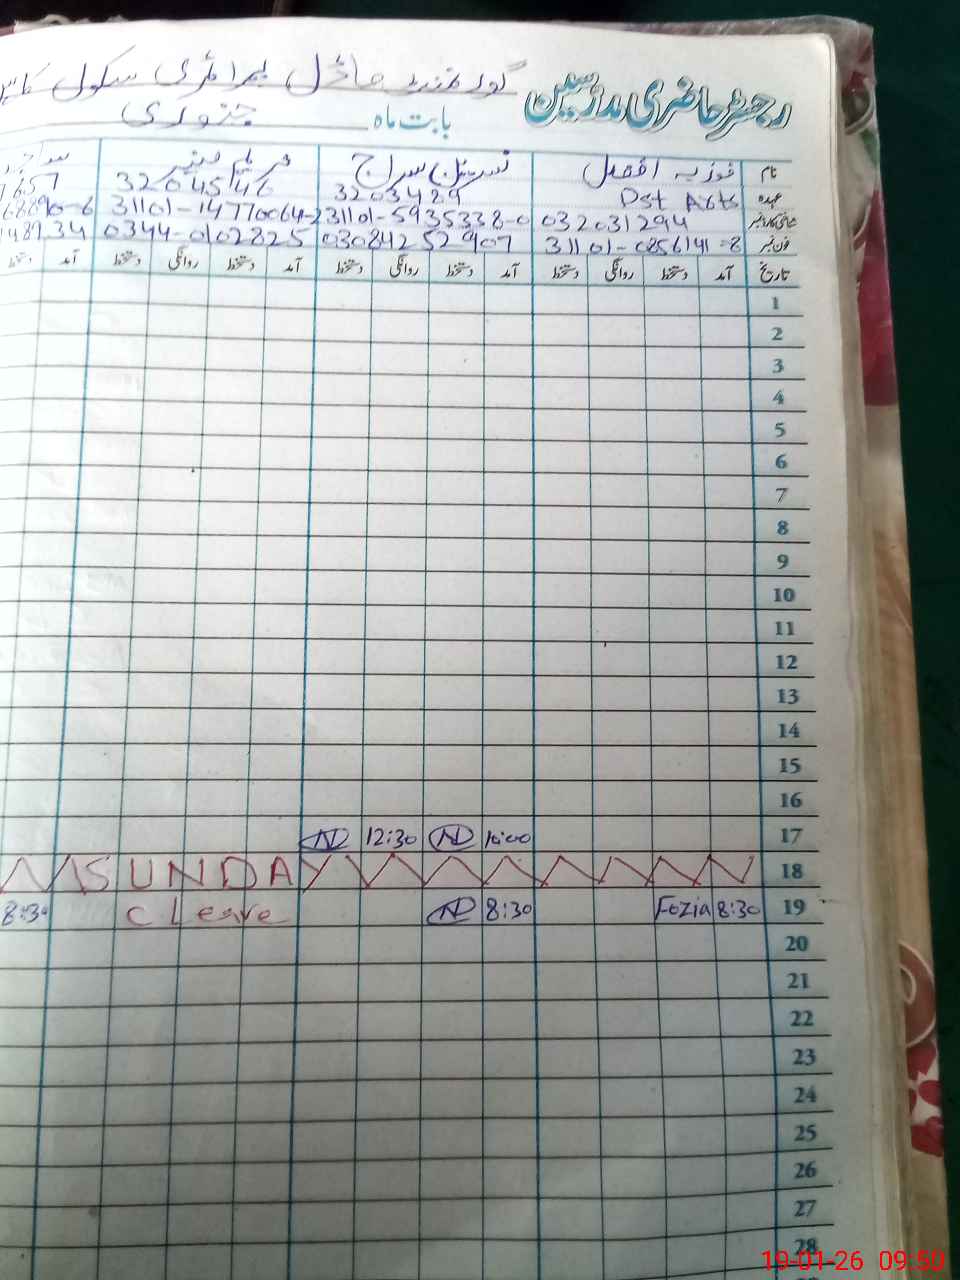 رجسٹر حاضری مدرسین گورنمنٹ ماڈل پرائمری سکول
بابت ماہ جنوری
نام فوزیہ افضل نسرین سراج مریم منیر
عہدہ Dst Arts 3203489 32045146
شناختی کارڈ نمبر 032031294 31101-5935338-0 31101-14770064-2
فون نمبر 31101-0856141-8 03084252907 0344-0102825
تاریخ آمد دستخط روانگی دستخط آمد دستخط روانگی دستخط آمد دستخط روانگی دستخط آمد دستخط
1
2
3
4
5
6
7
8
9
10
11
12
13
14
15
16
17 10:00 12:30
18 SUNDAY
19 8:30 Fozia 8:30 C Leave 8:30
20
21
22
23
24
25
26
27
28
19-01-26 09:50